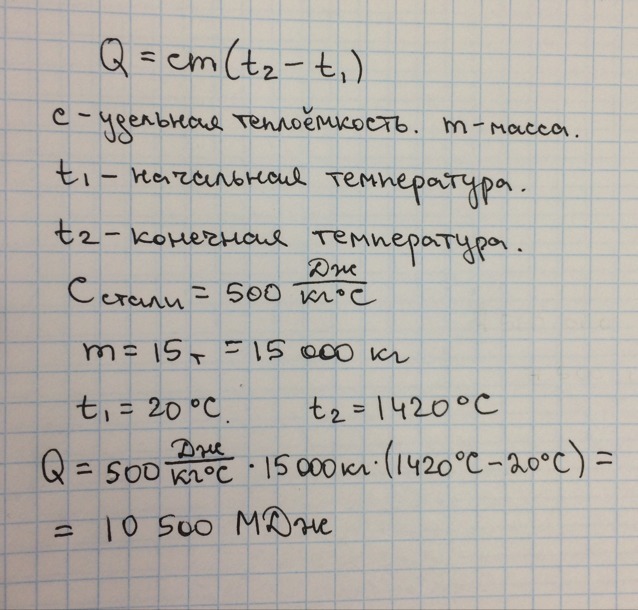 Q = cm(t₂ - t₁)
c - удельная теплоёмкость. m - масса.
t₁ - начальная температура.
t₂ - конечная температура.
Cстали = 500 Дж/кг°C
m = 15т = 15 000 кг
t₁ = 20°C. t₂ = 1420°C
Q = 500 Дж/кг°C · 15 000 кг · (1420°C - 20°C) =
= 10 500 МДж